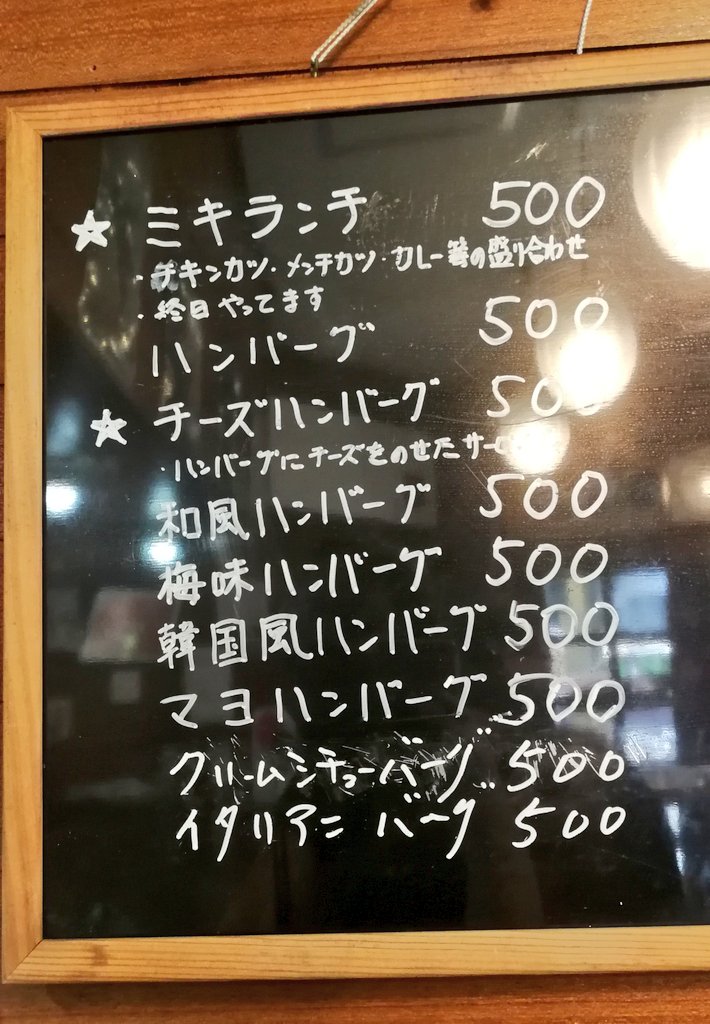 ★ ミキランチ 500
・チキンカツ・メンチカツ・カレー等の盛り合わせ
・終日やってます
ハンバーグ 500
★ チーズハンバーグ 500
・ハンバーグにチーズをのせた
和風ハンバーグ 500
梅味ハンバーグ 500
韓国風ハンバーグ 500
マヨハンバーグ 500
クリームシチューバーグ 500
イタリアン バーグ 500